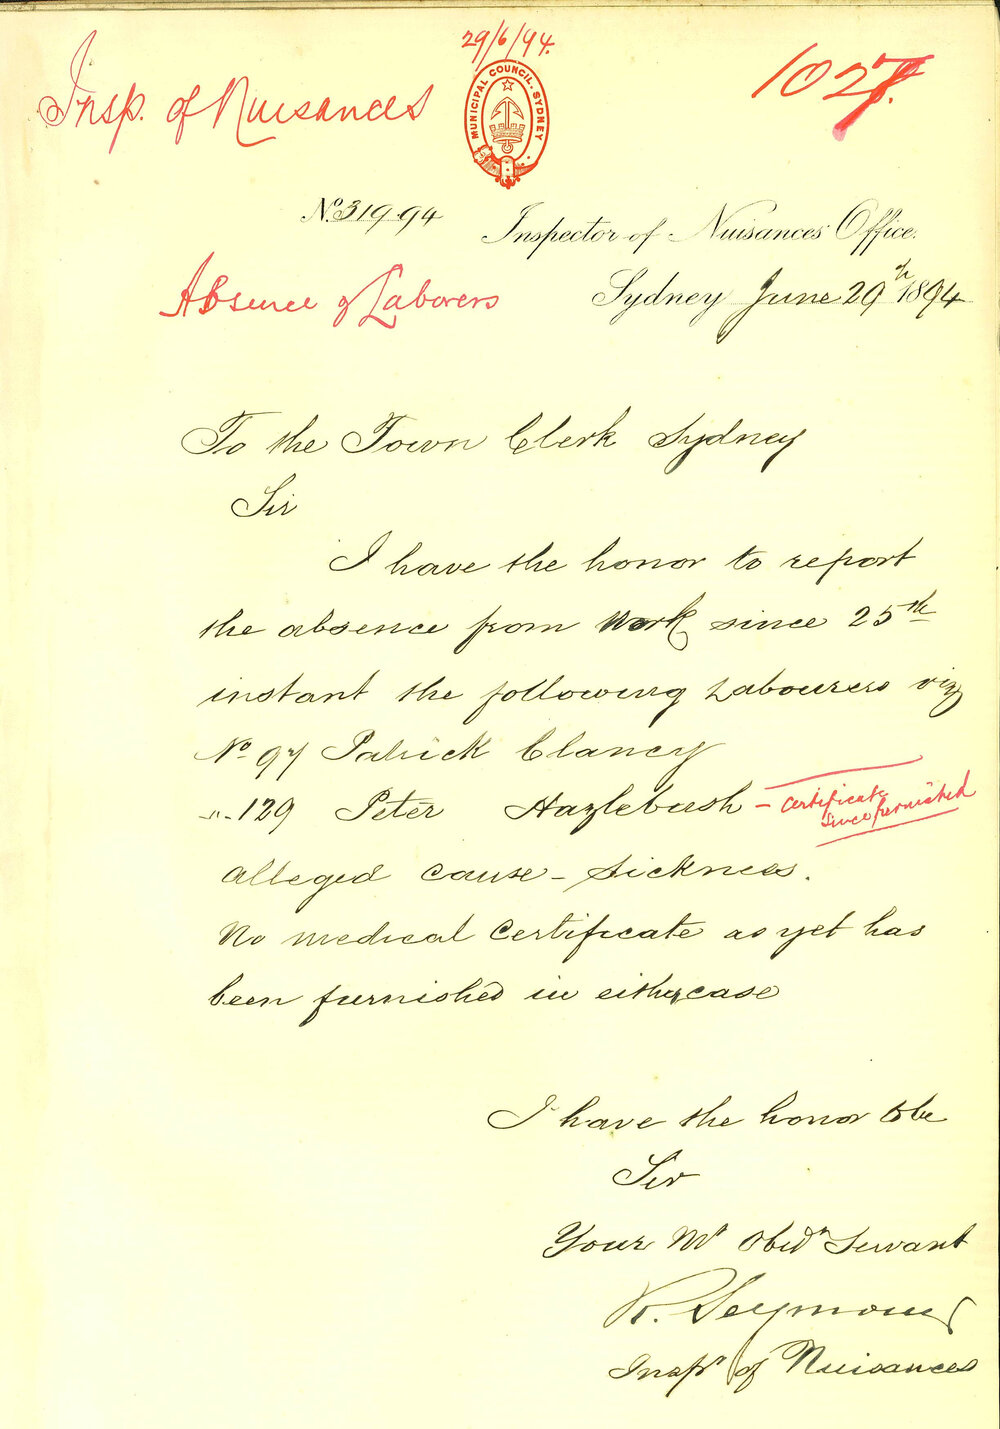 29/6/94.
Insp. of Nuisances
1027.
MUNICIPAL COUNCIL. SYDNEY
No 319.94
Inspector of Nuisances' Office.
Absence of Laborers
Sydney June 29th 1894
To the Town Clerk Sydney
Sir
I have the honor to report
the absence from work since 25th
instant the following Labourers viz
No 97 Patrick Clancy
" 129 Peter Hazlebush - Certificate
since furnished
alleged cause - sickness.
No medical certificate as yet has
been furnished in either case
I have the honor to be
Sir
Your Mt Obedt Servant
R. Seymour
Inspr of Nuisances